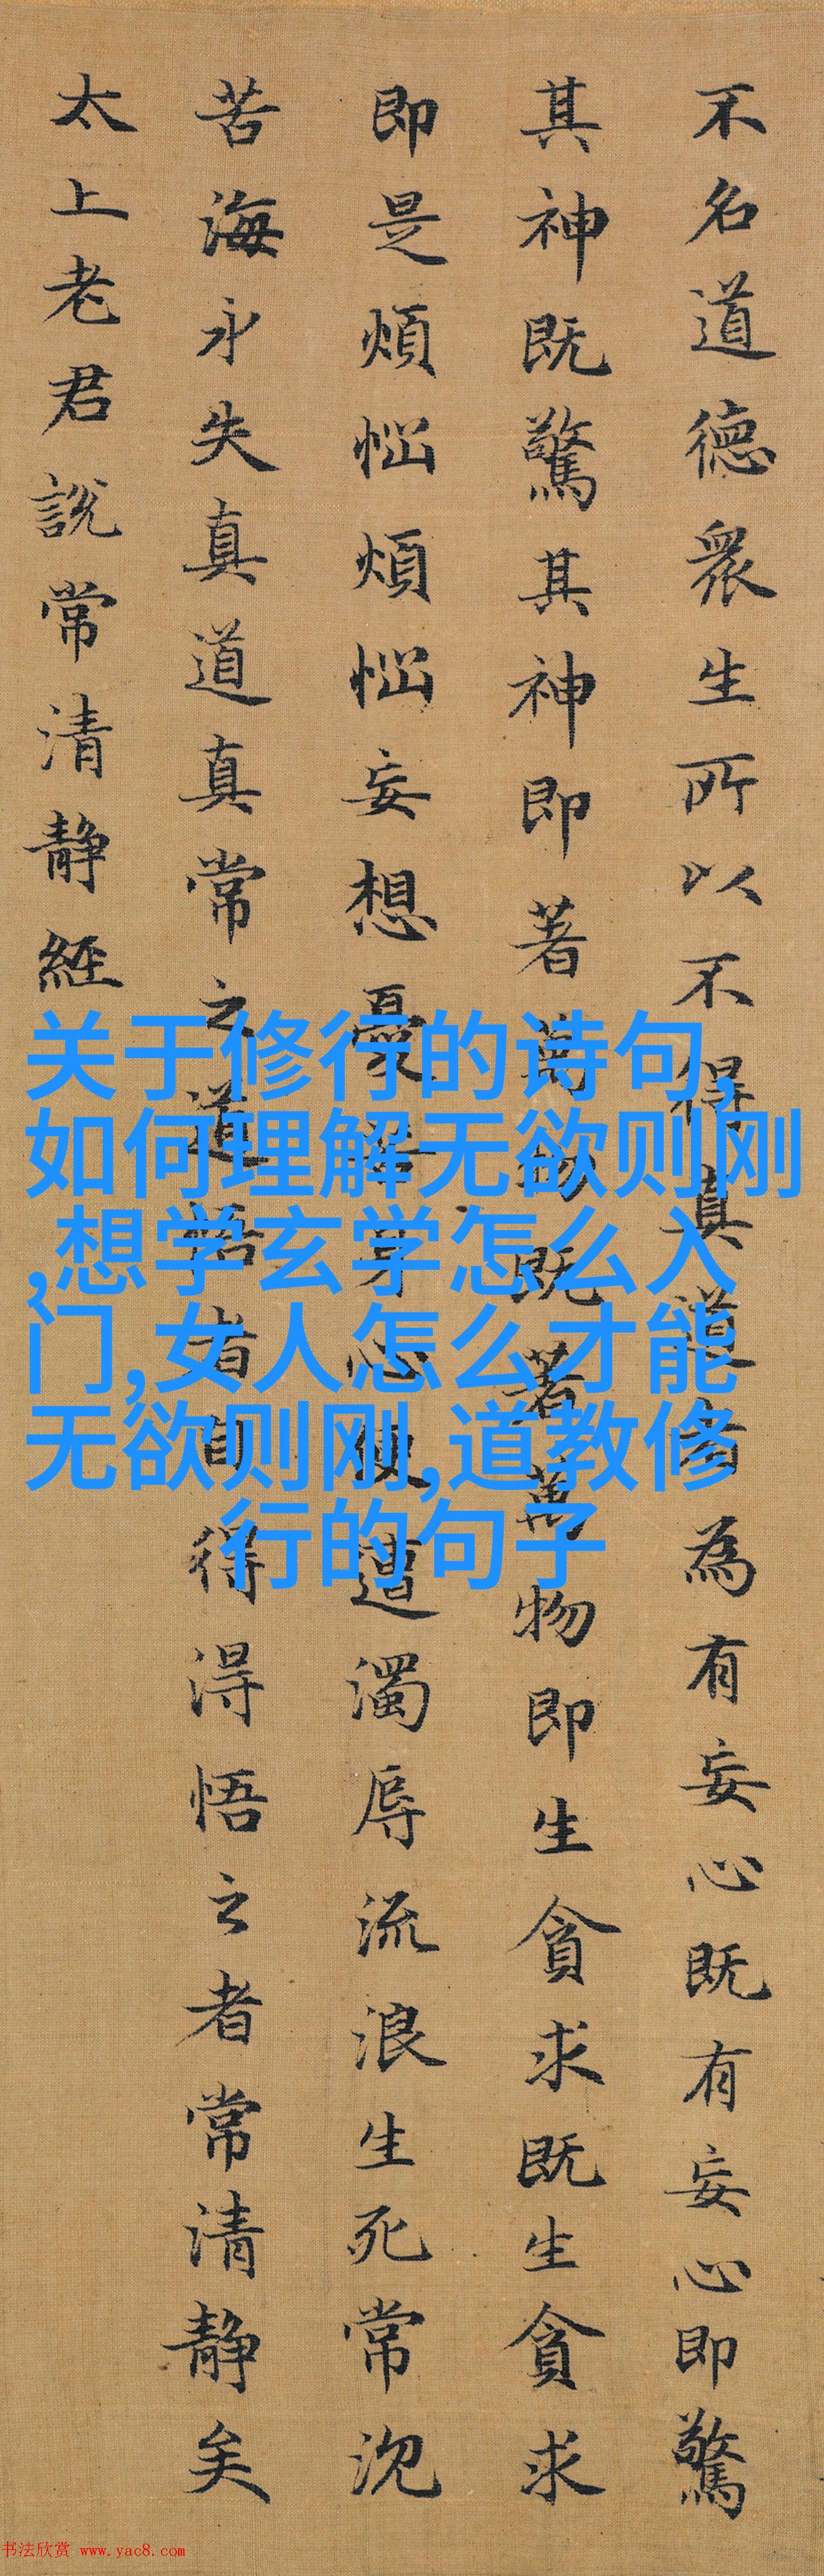 不名道德衆生所以不得真道者為有妄心既有妄心即驚
其神既驚其神即著萬物既著萬物即生貪求既生貪求
即是煩惱煩惱妄想憂苦身心便遭濁辱流浪生死常沉
苦海永失真道真常之道悟者自得得悟之者常清靜矣
太上老君說常清靜經
关于修行的诗句,
如何理解无欲则刚
,想学玄学怎么入
门,女人怎么才能
无欲则刚,道教修
行的句子
书法欣赏 www.yac8.com